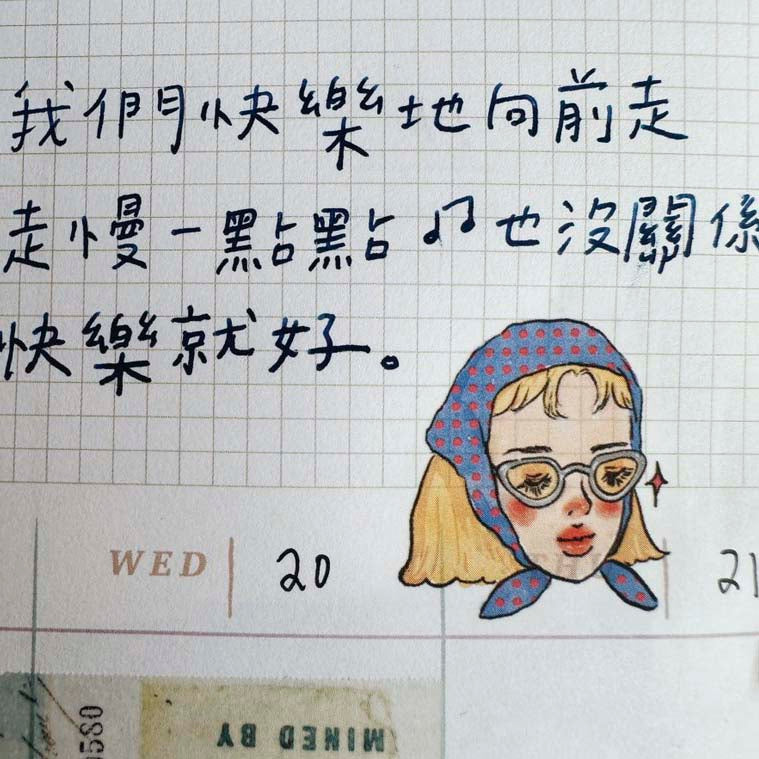 我們快樂地向前走
走慢一點點♫也沒關係
快樂就好。
WED 20
TH 21
0580
MINED BY